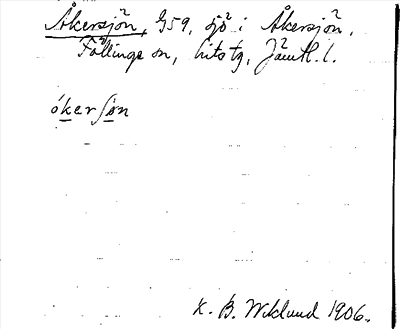 Åkersjön, G59, sjö i Åkersjön,
Föllinge sn, Lits tg, Jämtl. l.
ókerʃǿn
K. B. Wiklund 1906.